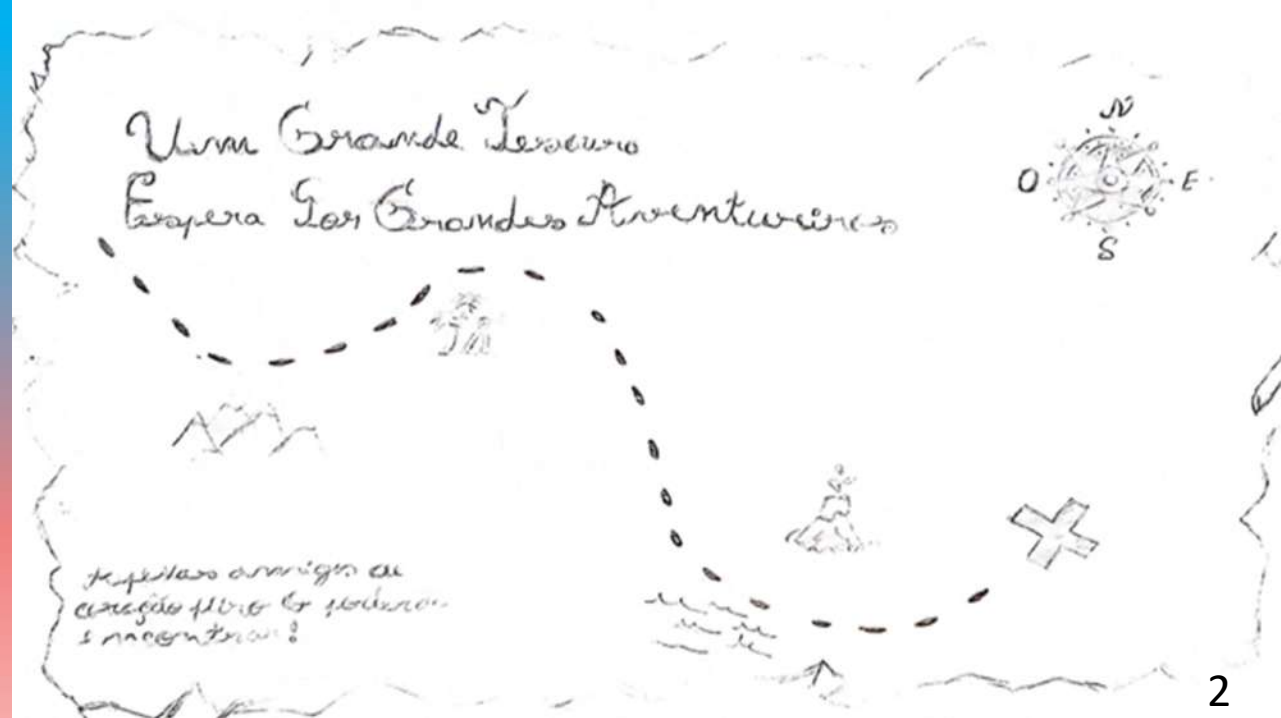 Um Grande Tesouro
Espera Por Grandes Aventureiros
N
O E
S
amigos
coração puro
encontrar!
2